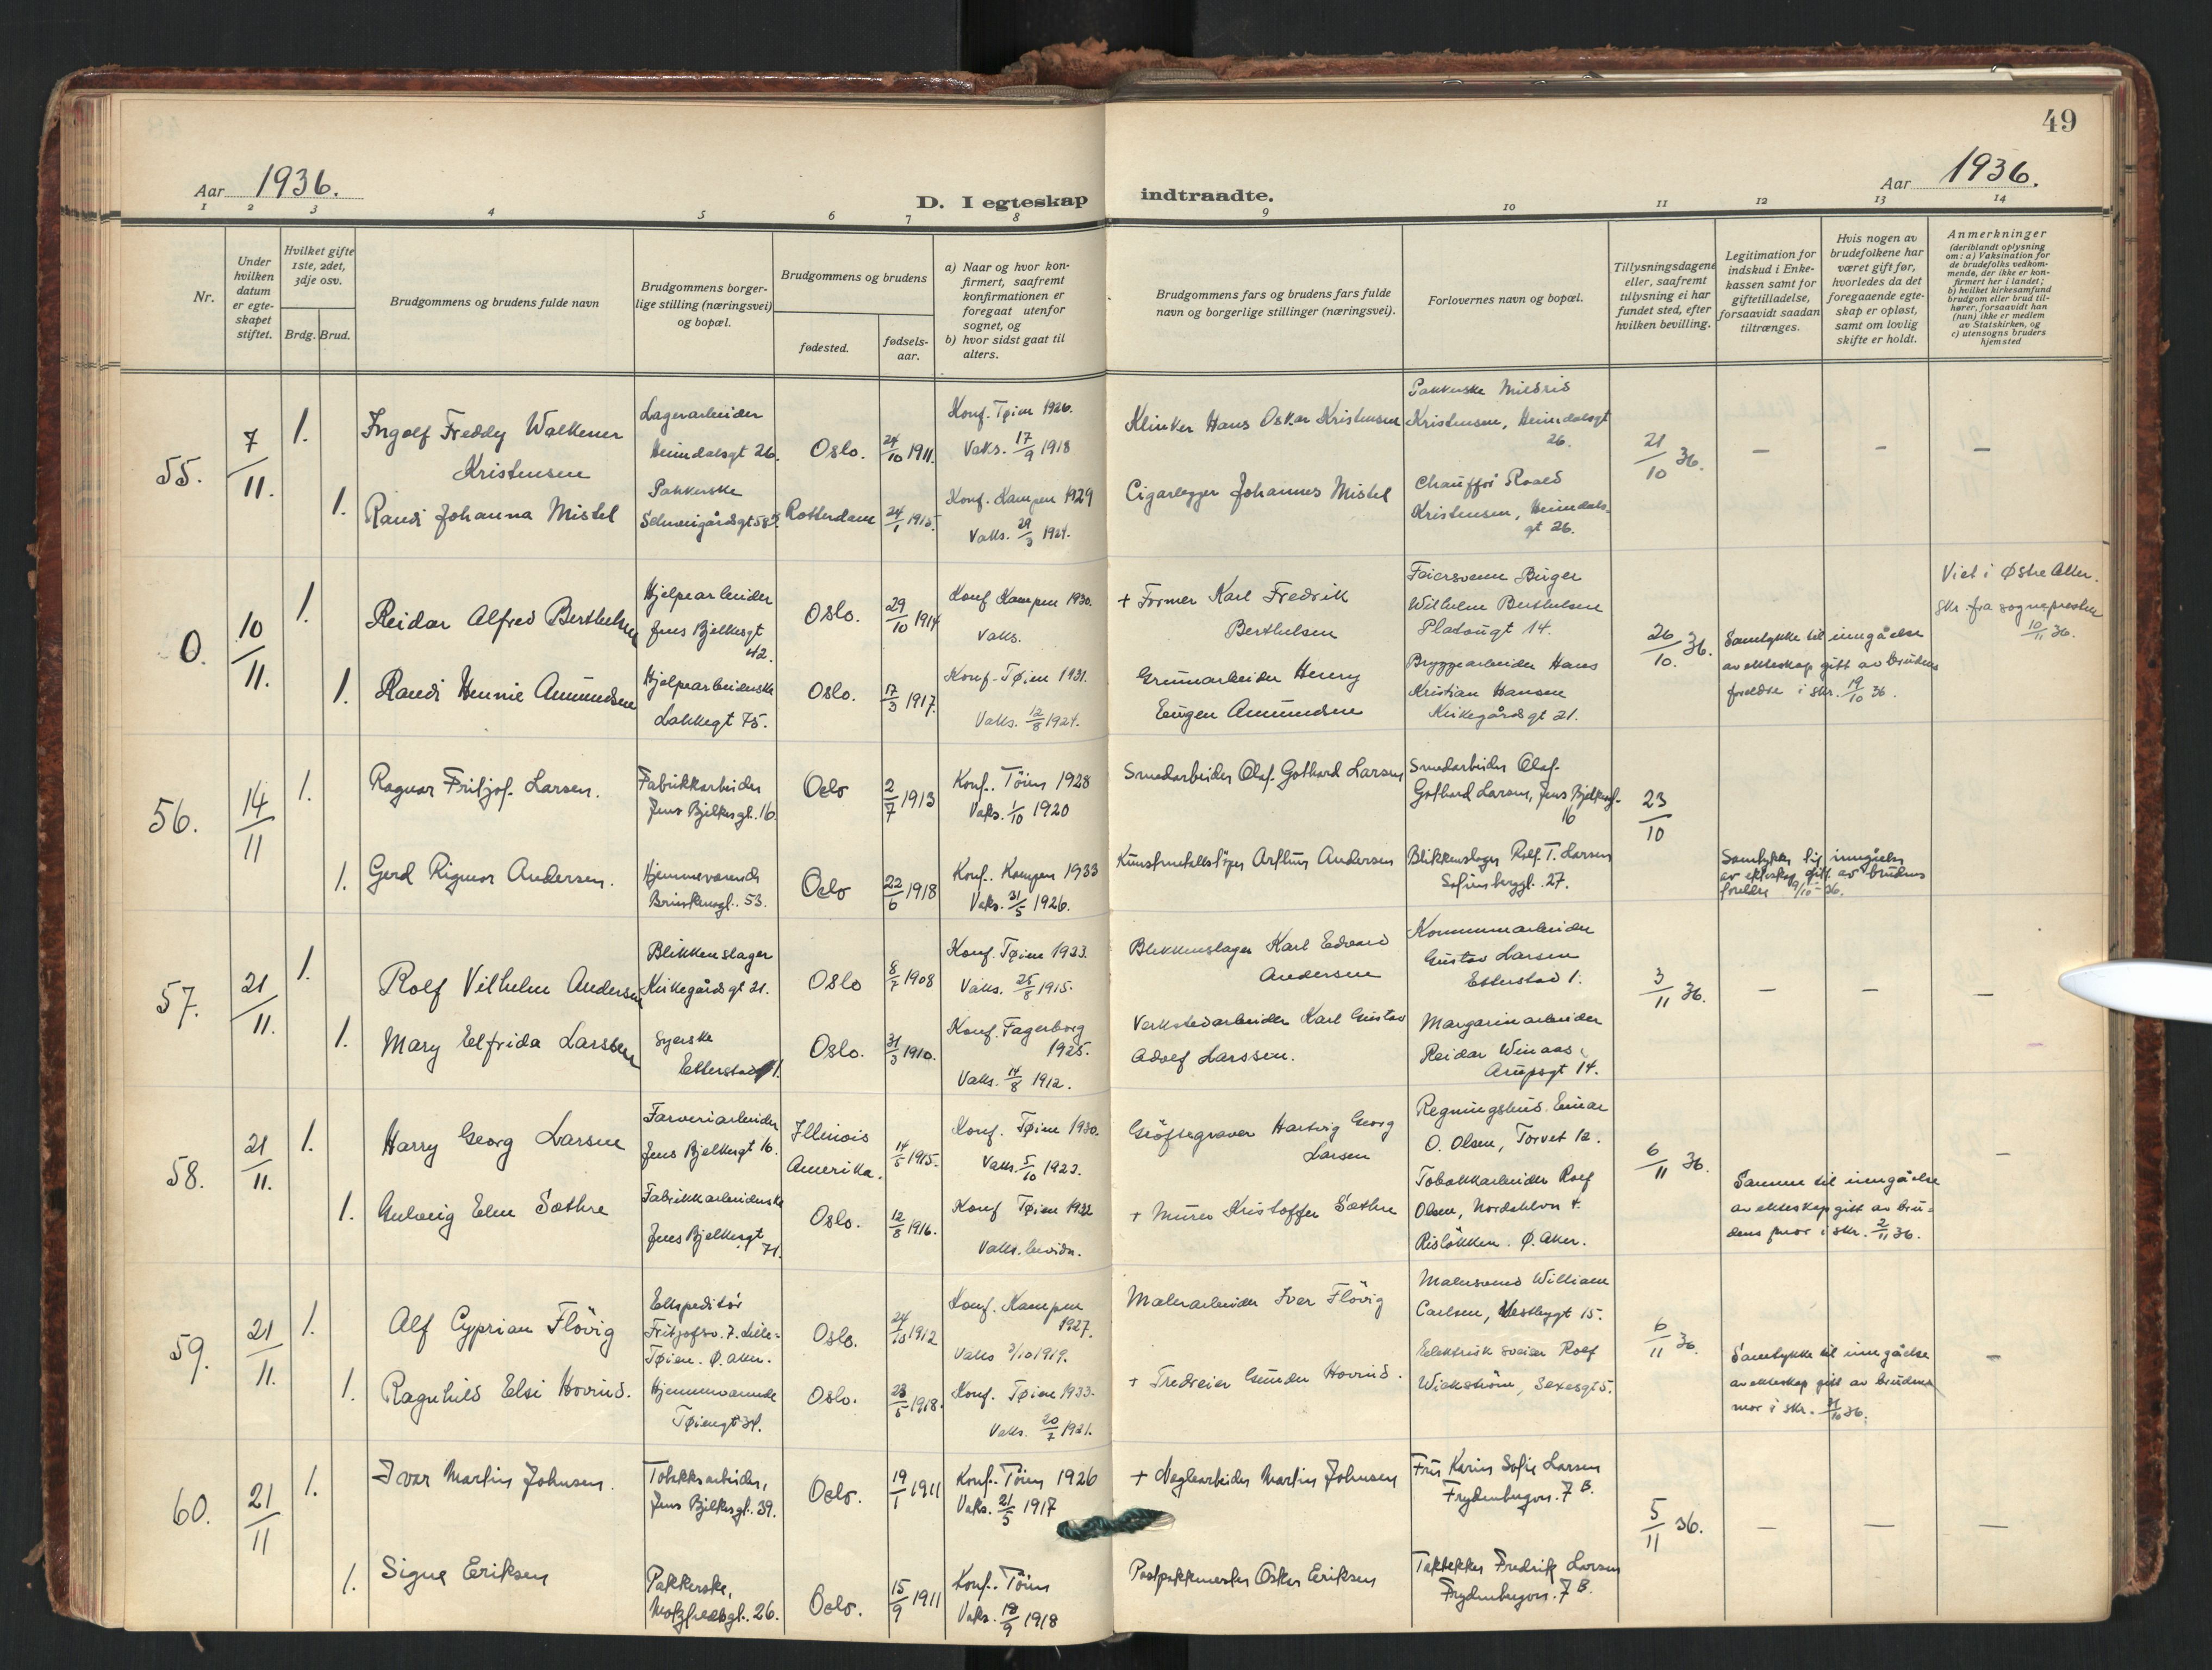 49
Aar 1936.
D. I egteskap indtraadte.
Aar 1936.
1 2 3 4 5 6 7 8 9 10 11 12 13 14
Nr.
Under hvilken datum er egteskapet stiftet.
Hvilket gifte 1ste, 2det, 3dje osv.
Brdg. Brud.
Brudgommens og brudens fulde navn
Brudgommens borgerlige stilling (næringsvei) og bopæl.
Brudgommens og brudens
fødested.
fødselsaar.
a) Naar og hvor konfirmert, saafremt konfirmationen er foregaat utenfor sognet, og
b) hvor sidst gaat til alters.
Brudgommens fars og brudens fars fulde navn og borgerlige stillinger (næringsvei).
Forlovernes navn og bopæl.
Tillysningsdagene eller, saafremt tillysning ei har fundet sted, efter hvilken bevilling.
Legitimation for indskud i Enkekassen samt for giftetilladelse, forsaavidt saadan tiltrænges.
Hvis nogen av brudefolkene har været gift før, hvorledes da det foregaaende egteskap er opløst, samt om lovlig skifte er holdt.
Anmerkninger
(deriblandt oplysning om: a) Vaksination for de brudefolks vedkommende, der ikke er konfirmert her i landet; b) hvilket kirkesamfund brudgom eller brud tilhører, forsaavidt han (hun) ikke er medlem av Statskirken, og c) utensogns bruders hjemsted
55.
7/11.
1.
Ingolf Freddy Walkener
Kristensen
Lagerarbeider
Heimdalsgt 26.
Oslo.
24/10 1911.
Konf. Tøien 1926.
Vaks. 17/9 1918
Klinker Hans Oskar Kristensen
Pakkerske Mildrid
Kristensen, Heimdalsgt
26.
21/10 36.
1.
Randi Johanna Mistel
Pakkerske
Schweigårdsgt 58
Rotterdam
24/1 1915.
Konf. Kampen 1929
Vaks. 29/3 1924.
Cigarlegger Johannes Mistel
Chauffør Roald
Kristensen, Heimdals-
gt 26.
0.
10/11.
1.
Reidar Alfred Berthelsen
Hjelpearbeider
Jens Bjelkesgt
42.
Oslo.
29/10 1914
Konf Kampen 1930.
Vaks.
+ Former Karl Fredrik
Berthelsen
Feiersvenn Birger
Wilhelm Berthelsen
Platougt 14.
26/10. 36.
Samtykke til inngåelse
av ekteskap gitt av brudens
foreldre i skr. 19/10 36.
Viet i Østre Aker.
Skr. fra sognepresten
10/11 36.
1.
Randi Hennie Amundsen
Hjelpearbeiderske
Lakkegt 75.
Oslo.
17/3 1917.
Konf. Tøien 1931.
Vaks. 12/8 1924.
Grunnarbeider Henry
Eugen Amundsen
Bryggearbeider Hans
Kristian Hansen
Kirkegårdsgt 21.
56.
14/11
1.
Ragnar Fritjof Larsen.
Fabrikkarbeider
Jens Bjelkesgt. 16.
Oslo
2/7 1913
Konf. Töien 1928
Vaks. 1/10 1920
Smedarbeider Olaf Gothard Larsen
Smedarbeider Olaf
Gothard Larsen, Jens Bjelkesgt.
16
23/10
1.
Gerd Rigmor Andersen.
Hjemmeværende
Brinkensgt. 53.
Oslo
22/6 1918
Konf. Kampen 1933
Vaks. 31/5 1926.
Kunstmetallstöper Arthur Andersen
Blikkenslager Rolf T. Larsen
Sofienberggt. 27.
Samtykke til inngåelse
av ekteskap gitt av brudens
foreldre 9/10 - 36.
57.
21/11.
1.
Rolf Vilhelm Andersen
Blikkenslager
Kirkegårdsgt 21.
Oslo
8/7 1908
Konf. Tøien 1923.
Vaks. 25/8 1915.
Blikkenslager Karl Edvard
Andersen
Kommunearbeider
Gustav Larsen
Etterstad 1.
3/11 36.
1.
Mary Elfrida Larssen
Syerske
Etterstad 1.
Oslo.
31/3 1910.
Konf. Fagerborg
1925.
Vaks. 14/8 1912.
Verkstedarbeider Karl Gustav
Adolf Larssen.
Margarinarbeider
Reidar Winaas,
Arupsgt 14.
58.
21/11.
1.
Harry Georg Larsen
Farveriarbeider
Jens Bjelkesgt 16.
Illinois
Amerika.
14/5 1915.
Konf. Tøien 1930.
Vaks. 5/10 1923.
Grøftegraver Hartvig Georg
Larsen
Regningsbud Einar
O. Olsen, Torvet 12.
6/11 36.
1.
Gudveig Elen Sæthre
Fabrikkarbeiderske
Jens Bjelkesgt
71.
Oslo.
12/8 1916.
Konf Tøien 1932
Vaks. bevidn.
+ Murer Kristoffer Sæthre
Tobakkarbeider Rolf
Olsen,
Risløkken. Ø. Aker.
Samme til inngåelse
av ekteskap gitt av bru-
dens mor i skr. 2/11 36.
59.
21/11.
1.
Alf Cyprian Flövig
Ekspeditør
Fritjofsv. 7. Lille-
Tøien. Ø. Aker.
Oslo.
24/10 1912
Konf. Kampen
1927.
Vaks 3/10 1919.
Malerarbeider Iver Flövig
Malersvend William
Carlsen, Vestbygt 15.
6/11 36.
1.
Ragnhild Elsi Hovind.
Hjemmeværende
Tøiengt 34.
Oslo.
23/5 1918.
Konf. Tøien 1933.
Vaks. 20/7 1921.
+ Tredreier Gunder Hovind.
Elektrisk sveiser Rolf
Wickstrøm, Sexesgt 5.
Samtykke til inngåelse
av ekteskap gitt av brudens
mor i skr. 31/10 36.
60.
21/11
1.
Ivar Martin Johnsen.
Tobakksarbeider,
Jens Bjelkesgt. 39.
Oslo.
19/1 1911
Konf. Töien 1926
Vaks. 21/5 1917
+ Naglearbeider Martin Johnsen
Fru Karin Sofie Larsen
Frydenbergvn. 7 B.
5/11 36.
1.
Signe Eriksen
Pakkerske,
Motzfeldtsgt. 26.
Oslo.
15/9 1911
Konf. Töien
Vaks. 18/9 1918
Postpakkmester Oskar Eriksen
Taktekker Fredrik Larsen
Frydenbergvn. 7 B.